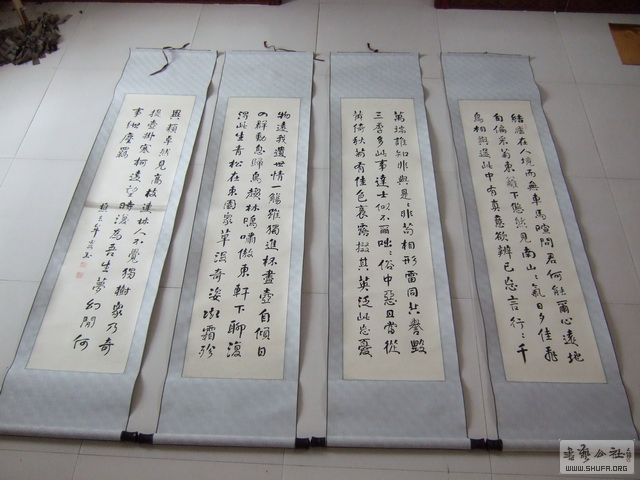 結廬在人境而無車馬喧問君何能爾心遠地
自偏采菊東籬下悠然見南山〻氣日夕佳飛
鳥相與還此中有真意欲辨已忘言行〻千
萬端誰知非與是〻非苟相形雷同共譽毀
三季多此事達士似不爾咄〻俗中惡且當從
黃綺秋菊有佳色裛露掇其英泛此忘憂
物遠我遺世情一觴雖獨進杯盡壺自傾日
入群動息歸鳥趨林鳴嘯傲東軒下聊復
得此生青松在東園眾草沒奇姿凝霜殄
異類卓然見高枝連林人不覺獨樹眾乃奇
提壺挂寒柯遠望時復為吾生夢幻間何
事紲塵羈
書藝公社
WWW.SHUFA.ORG